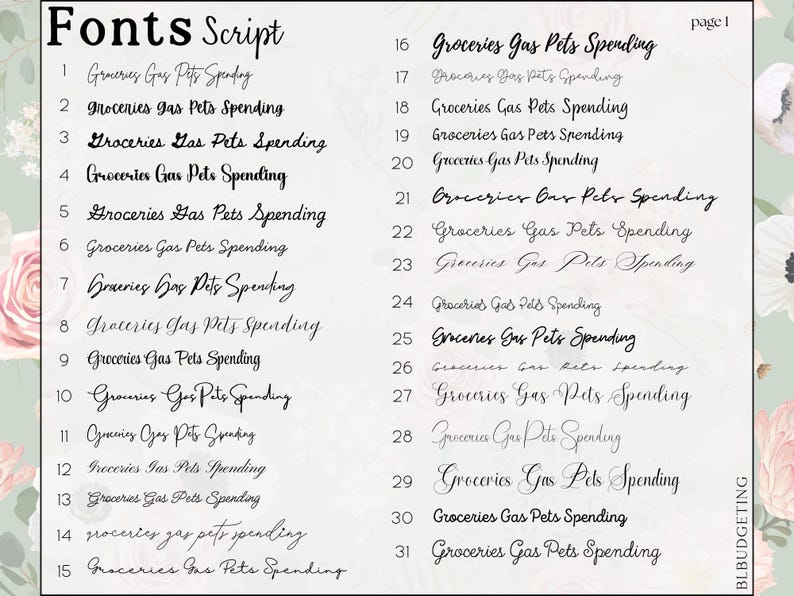 Fonts Script
1 Groceries Gas Pets Spending
2 Groceries Gas Pets Spending
3 Groceries Gas Pets Spending
4 Groceries Gas Pets Spending
5 Groceries Gas Pets Spending
6 Groceries Gas Pets Spending
7 Groceries Gas Pets Spending
8 Groceries Gas Pets Spending
9 Groceries Gas Pets Spending
10 Groceries Gas Pets Spending
11 Groceries Gas Pets Spending
12 Groceries Gas Pets Spending
13 Groceries Gas Pets Spending
14 groceries gas pets spending
15 Groceries Gas Pets Spending
page 1
16 Groceries Gas Pets Spending
17 Groceries Gas Pets Spending
18 Groceries Gas Pets Spending
19 Groceries Gas Pets Spending
20 Groceries Gas Pets Spending
21 Groceries Gas Pets Spending
22 Groceries Gas Pets Spending
23 Groceries Gas Pets Spending
24 Groceries Gas Pets Spending
25 Groceries Gas Pets Spending
26 Groceries Gas Pets Spending
27 Groceries Gas Pets Spending
28 Groceries Gas Pets Spending
29 Groceries Gas Pets Spending
30 Groceries Gas Pets Spending
31 Groceries Gas Pets Spending
BLBUDGETING